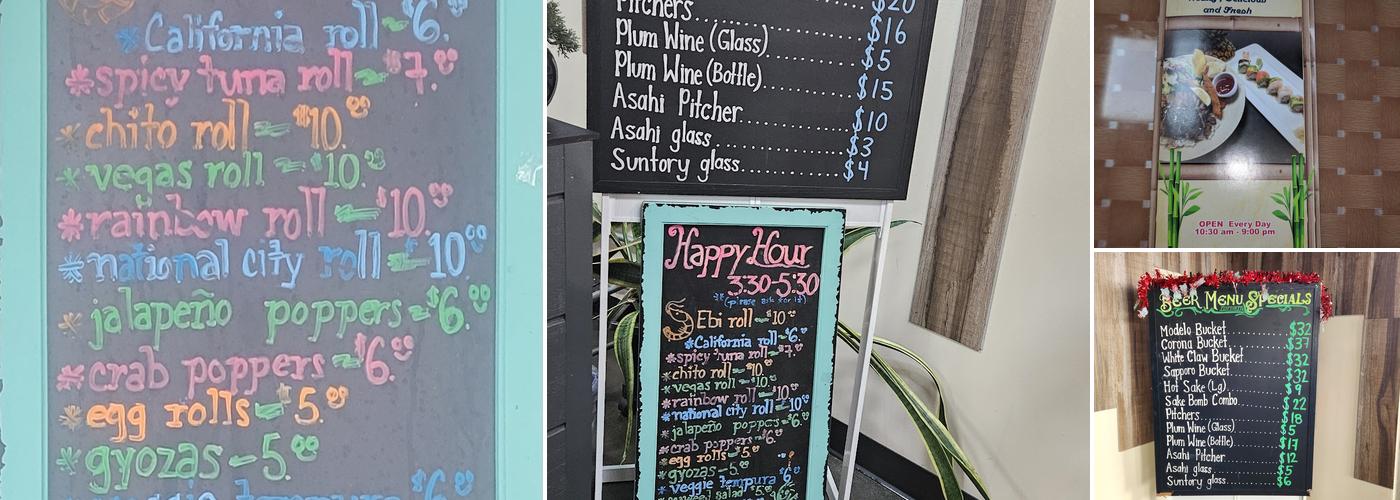 California roll $6.00
spicy tuna roll $7.00
chito roll $10.00
vegas roll $10.00
rainbow roll $10.00
national city roll $10.00
jalapeño poppers $6.00
crab poppers $6.00
egg rolls $5.00
gyozas - 5.00
veggie tempura $6
$20
Pitchers $16
Plum Wine (Glass) $5
Plum Wine (Bottle) $15
Asahi Pitcher $10
Asahi glass $3
Suntory glass $4
Happy Hour
3:30-5:30
(please ask for it)
Ebi roll - $10.00
California roll - $6.00
spicy tuna roll - $7.00
chito roll - $10.00
vegas roll - $10.00
rainbow roll - $10.00
national city roll - $10.00
jalapeño poppers - $6.00
crab poppers - $6.00
egg rolls - 5.00
gyozas - 5.00
veggie tempura $6
seaweed salad
Delicious
and Fresh
OPEN Every Day
10:30 am - 9:00 pm
BEER MENU SPECIALS
Modelo Bucket $32
Corona Bucket $37
White Claw Bucket $32
Sapporo Bucket $32
Hot Sake (Lg) $9
Sake Bomb Combo $22
Pitchers $18
Plum Wine (Glass) $5
Plum Wine (Bottle) $17
Asahi Pitcher $12
Asahi glass $5
Suntory glass $6